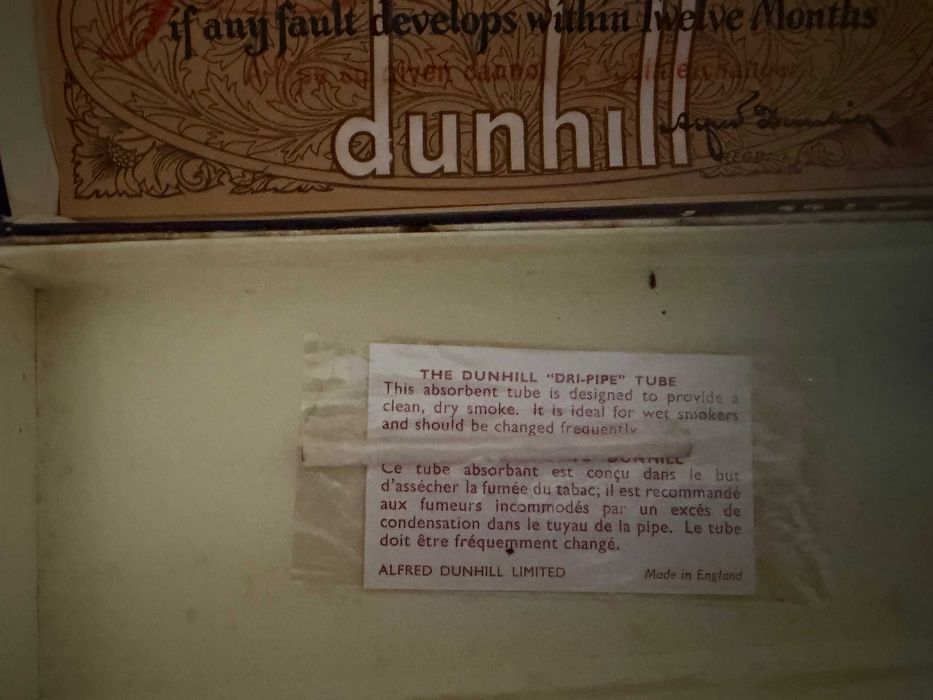 if any fault develops within Twelve Months
given
dunhill
THE DUNHILL "DRI-PIPE" TUBE
This absorbent tube is designed to provide a
clean, dry smoke. It is ideal for wet smokers
and should be changed frequently
DUNHILL
Ce tube absorbant est conçu dans le but
d'assécher la fumée du tabac; il est recommandé
aux fumeurs incommodés par un excés de
condensation dans le tuyau de la pipe. Le tube
doit être fréquemment changé.
ALFRED DUNHILL LIMITED Made in England